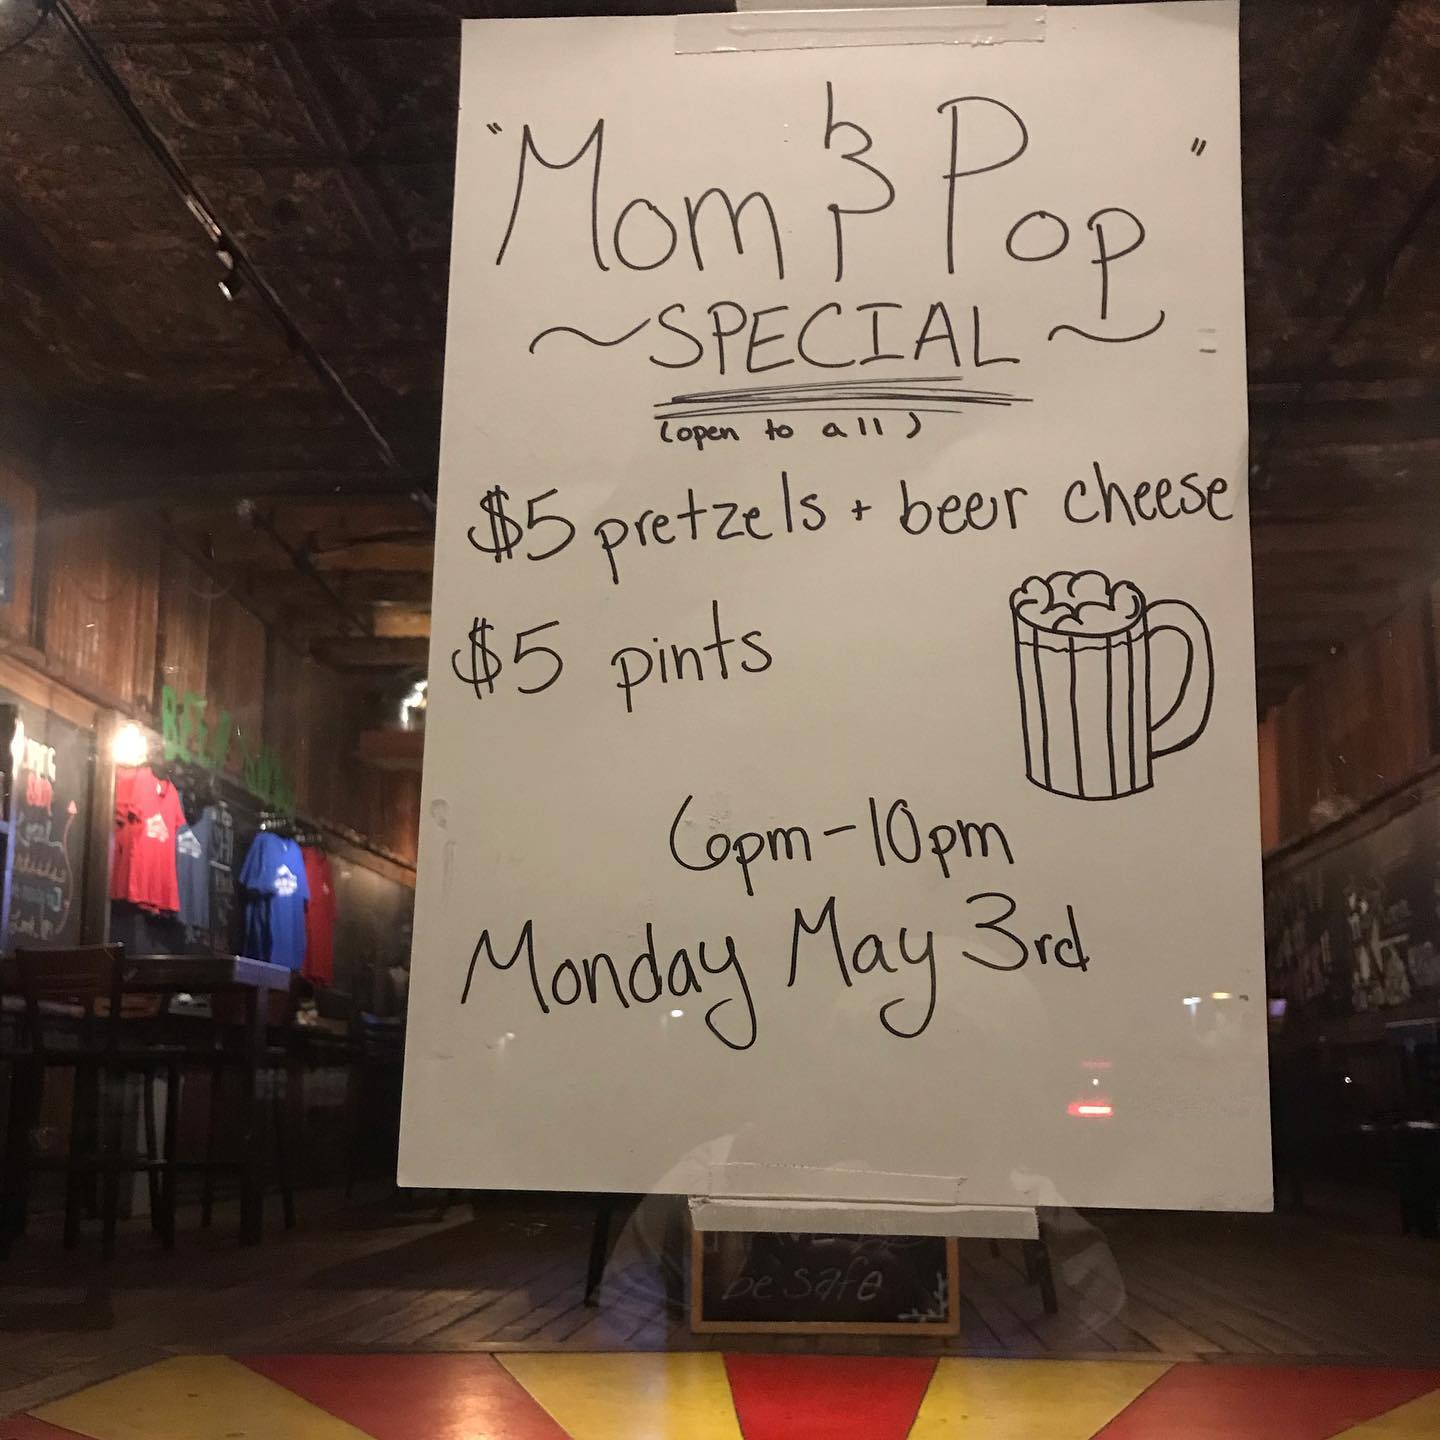 "Mom & Pop"
~SPECIAL~
(open to all)
$5 pretzels + beer cheese
$5 pints
6pm-10pm
Monday May 3rd
BEER
be safe